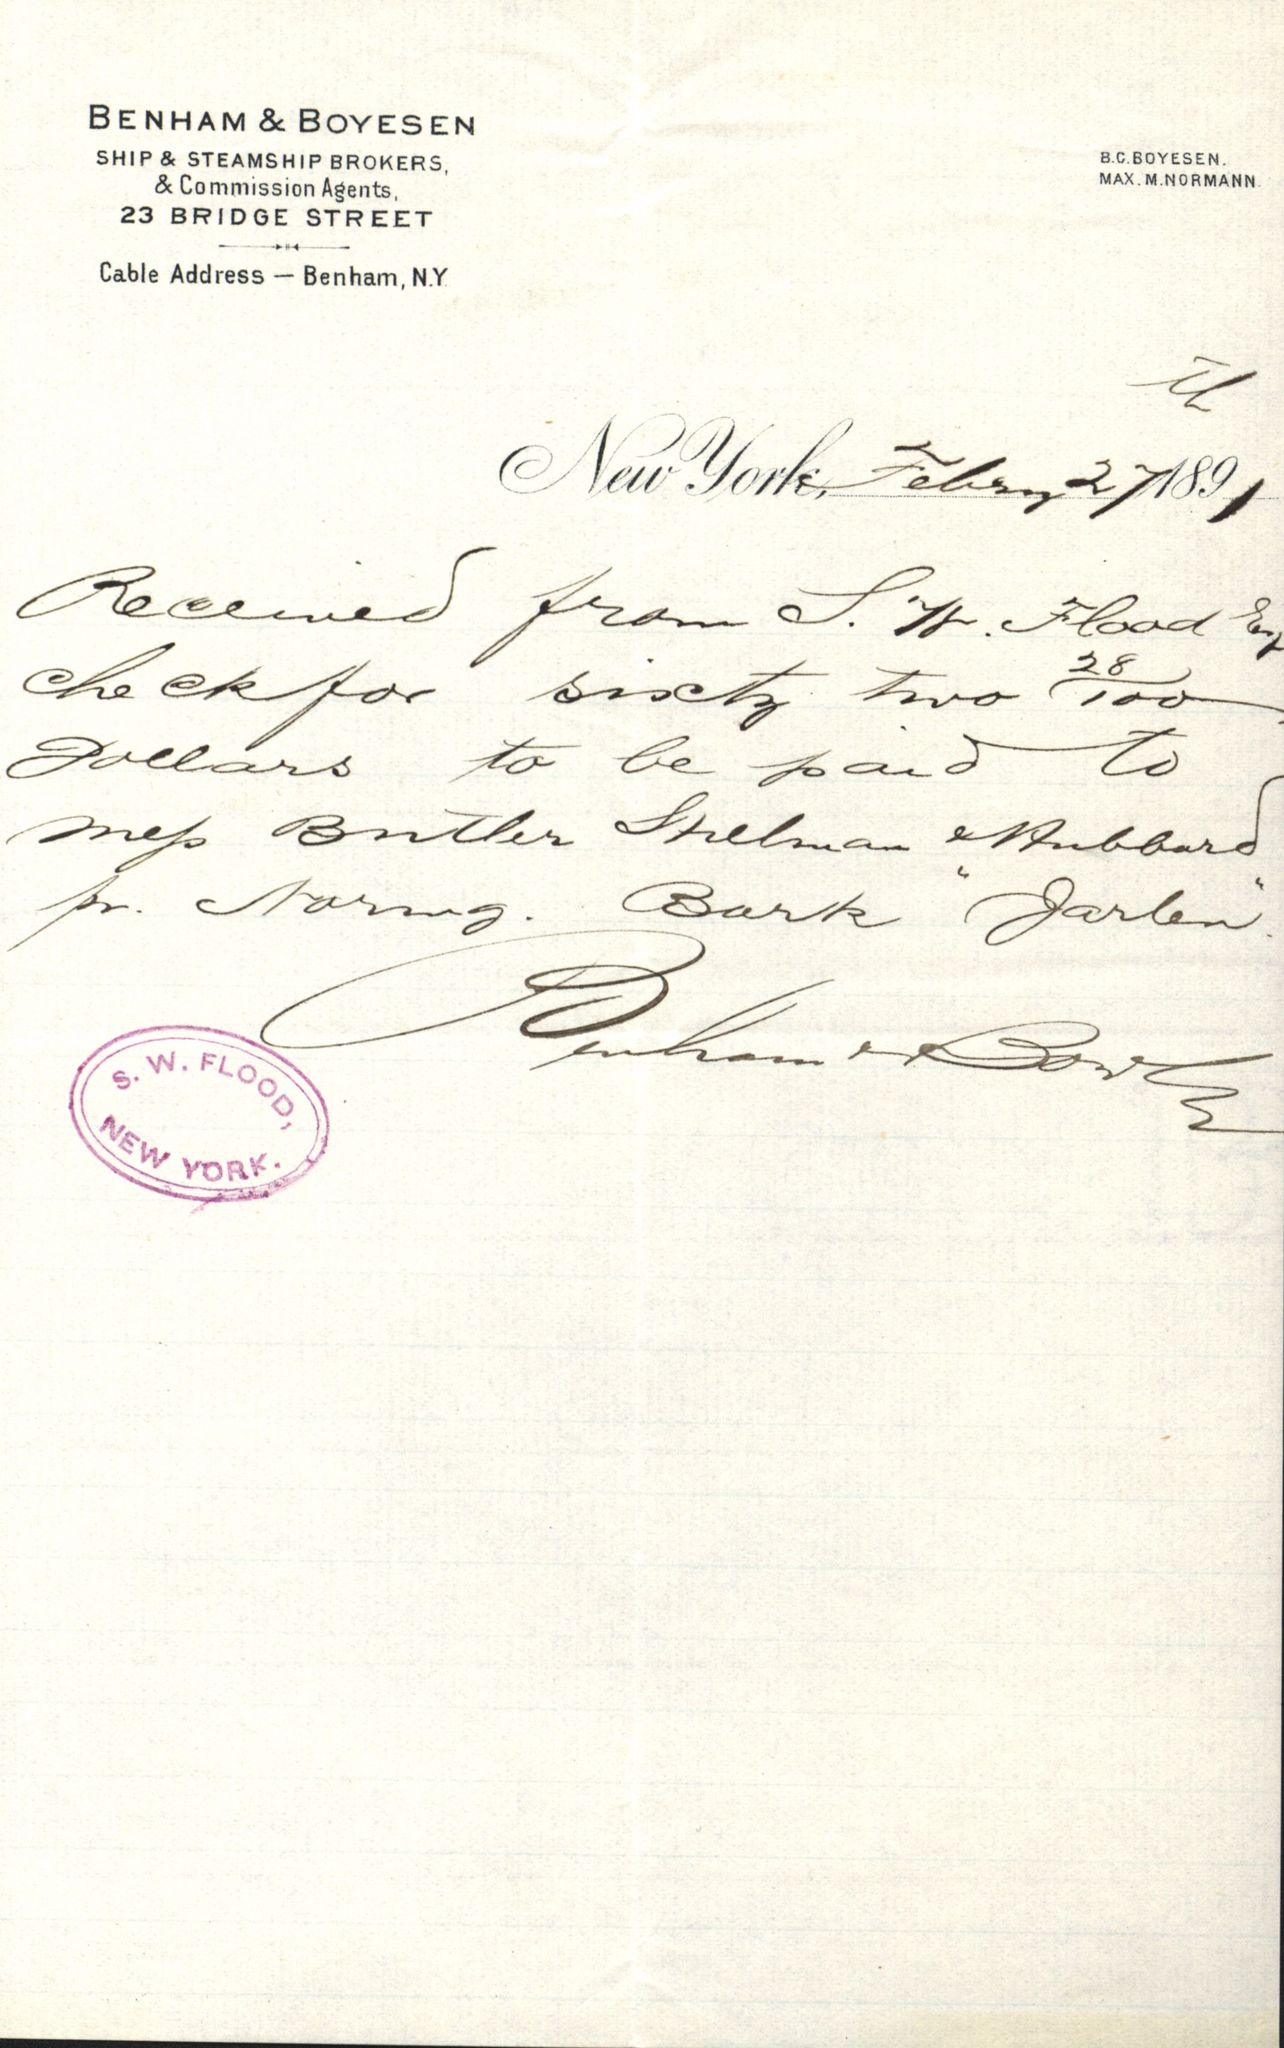 BENHAM & BOYESEN
SHIP & STEAMSHIP BROKERS,
& Commission Agents,
23 BRIDGE STREET
Cable Address — Benham, N.Y.
B.C. BOYESEN.
MAX. M. NORMANN.
th
New York, Febry 27 1891
Received from S. W. Flood Esq
check for sixty two 28/100
Dollars to be paid to
Mess Butler Stillman & Hubbard
pr. Norwg. Bark "Jarlen".
Benham &
S. W. FLOOD,
NEW YORK.